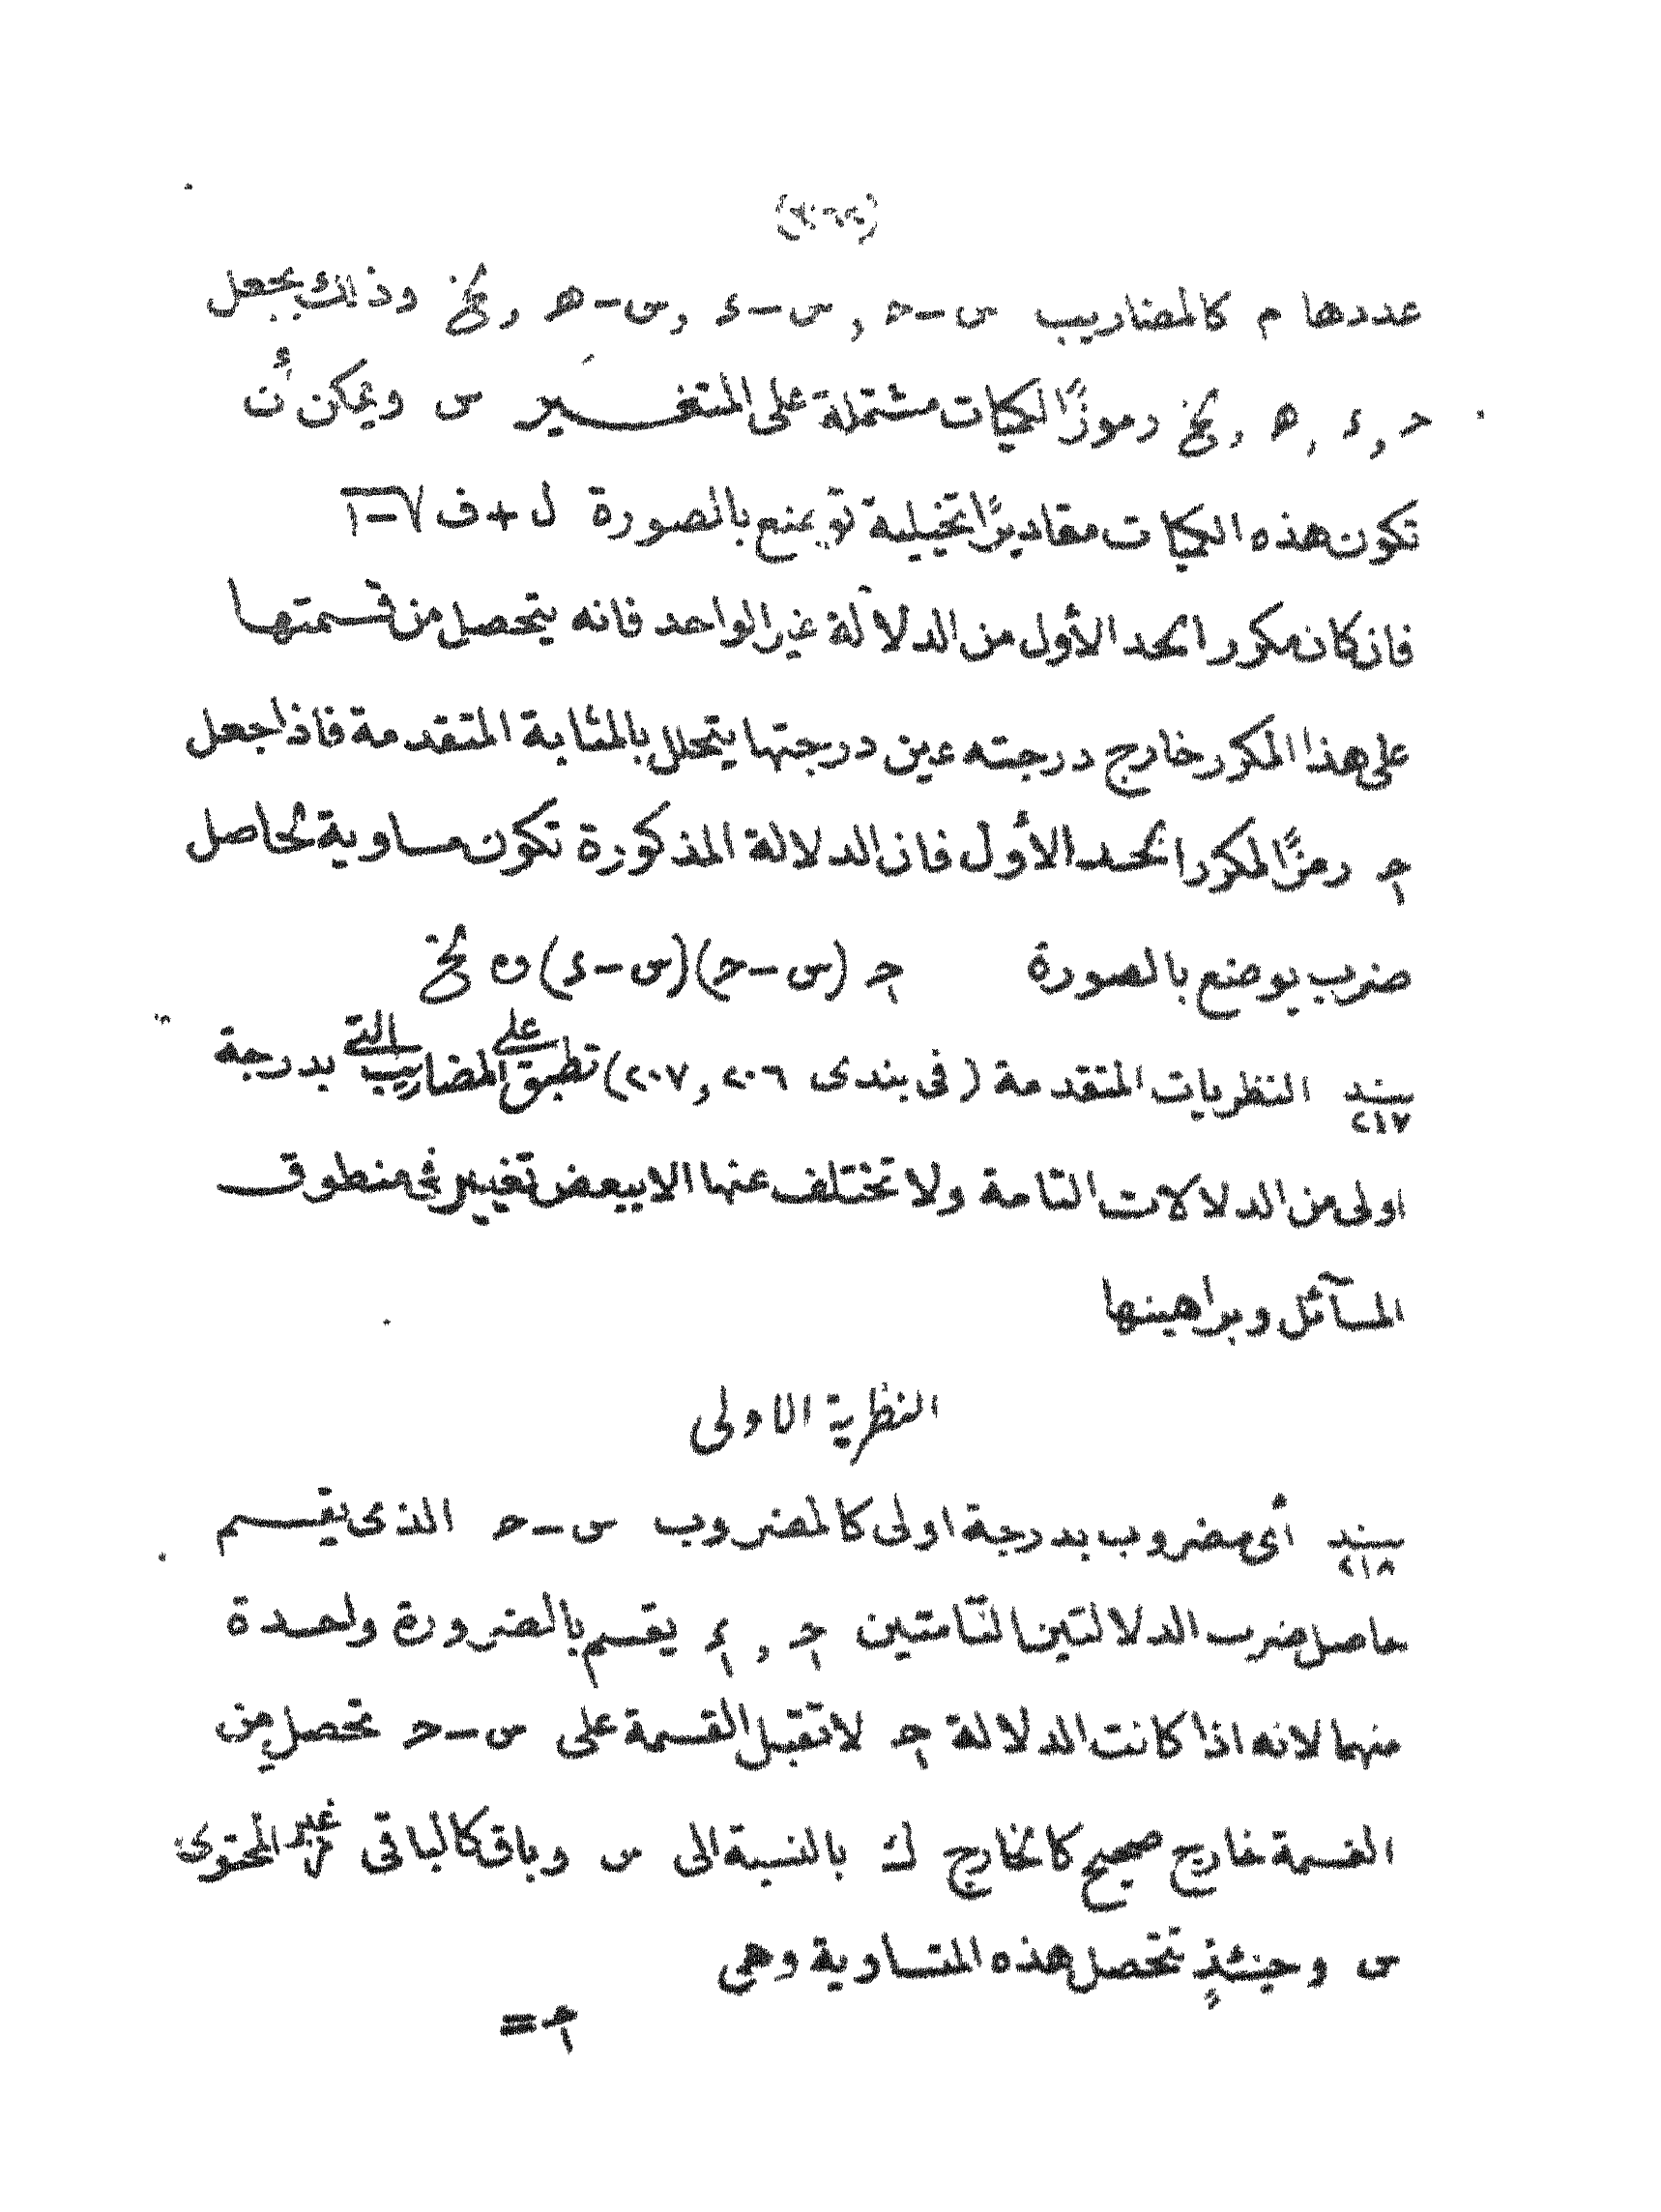 عددها م كالمضاريب س-حـ , س-ء , س-هـ , الخ وذلك بجعل
حـ , ء , هـ , الخ رموزًا لكميات مشتملة على المتغير س ويمكن أن
تكون هذه الكميات مقاديرًا تخيلية توضع بالصورة ل + ف √-١
فان كان مكرر الحد الأول من الدلالة غير الواحد فانه يتحصل من قسمتها
على هذا المكرر خارج درجته عين درجتها يتحلل بالمثابة المتقدمة فاذا جعل
حـ١ رمزًا لمكرر الحد الأول فان الدلالة المذكورة تكون مساوية لحاصل
ضرب يوضع بالصورة حـ١ (س-حـ)(س-ء) الخ
بند ٢١٧ النظريات المتقدمة (فى بندى ٢٠٦ , ٢٠٧) تطبق على المضاريب التى بدرجة
اولى من الدلالات التامة ولا تختلف عنها الا ببعض تغيير فى منطوق
المسآئل وبراهينها
النظرية الاولى
بند ٢١٨ أى مضروب بدرجة اولى كالمضروب س-حـ الذى يقسم
حاصل ضرب الدلالتين التامتين حـ١ , ء١ يقسم بالضرورة واحدة
منهما لانه اذا كانت الدلالة حـ١ لا تقبل القسمة على س-حـ تحصل من
القسمة خارج صحيح كالخارج ك بالنسبة الى س وباق كالباقى م غير المحتوى
س وحينئذٍ تتحصل هذه المتساوية وهى
حـ١ =